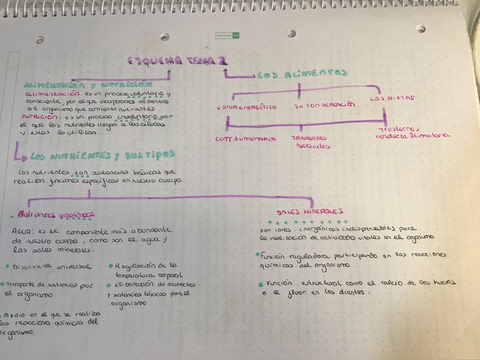 ESQUEMA TEMA 2
ALIMENTACIÓN Y NUTRICIÓN
ALIMENTACIÓN: es un proceso voluntario y
consciente, por el que incorporamos alimentos
al organismo que contienen nutrientes
NUTRICIÓN: es un proceso involuntario por
el que los nutrientes llegan a las células
y estas lo utilizan
LOS ALIMENTOS
VALOR ENERGÉTICO
SU CONSERVACIÓN
LAS DIETAS
TRASTORNOS
Trastornos
conducta Alimentaria
LOS NUTRIENTES Y SUS TIPOS
Los nutrientes son sustancias básicas que
realizan funciones específicas en nuestro cuerpo
SALES MINERALES
Son iones inorgánicos indispensables para
la realización de actividades vitales en el organismo
Función reguladora participando en las reacciones
químicas del organismo
Función estructural como el calcio de los huesos
o el flúor en los dientes.
AGUA: es el componente más abundante
de nuestro cuerpo, como son el agua y
las sales minerales.
Disolvente universal
Transporte de sustancias por
el organismo
Medio en el que se realizan
las reacciones químicas del
organismo
Regulación de la
temperatura corporal
Eliminación de desechos
y sustancias tóxicas para el
organismo